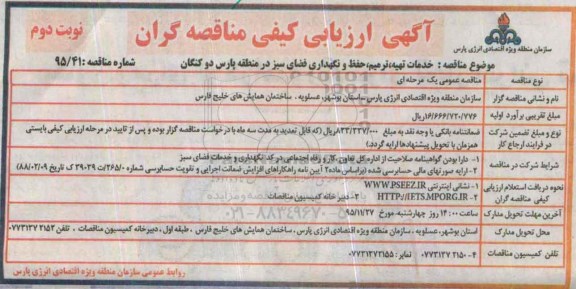 آگهی ارزیابی کیفی مناقصه گران
نوبت دوم
سازمان منطقه ویژه اقتصادی انرژی پارس
موضوع مناقصه : خدمات تهیه،ترمیم،حفظ و نگهداری فضای سبز در منطقه پارس دو کنگان
شماره مناقصه: ۹۵/۴۱
نوع مناقصه
مناقصه عمومی یک مرحله ای
نام و نشانی مناقصه گزار
سازمان منطقه ویژه اقتصادی انرژی پارس ،استان بوشهر، عسلویه ، ساختمان همایش های خلیج فارس
مبلغ تقریبی برآورد اولیه
۱۶/۶۶۶/۷۲۰/۷۷۶ریال
نوع و مبلغ تضمین شرکت در فرایند ارجاع کار
ضمانتنامه بانکی یا وجه نقد به مبلغ ۸۳۳/۳۳۷/۰۰۰ریال (که قابل تمدید به مدت سه ماه با درخواست مناقصه گزار بوده و پس از تایید در مرحله ارزیابی کیفی بایستی
همزمان با تحویل پیشنهادها ارایه گردد.)
شرایط شرکت در مناقصه
۱- دارا بودن گواهینامه صلاحیت از اداره کل تعاون، کار و رفاه اجتماعی در کد نگهداری و خدمات فضای سبز
۲- ارایه صورتهای مالی حسابرسی شده (براساس ماده۲ آیین نامه راهکارهای افزایش ضمانت اجرایی و تقویت حسابرسی شماره ۲۶۵/ت ۳۹۰۳۹ ک تاریخ ۸۸/۰۲/۰۹)
نحوه دریافت استعلام ارزیابی کیفی مناقصه گران
۱- نشانی اینترنتی WWW.PSEEZ.IR
۲- HTTP://IETS.MPORG.IR
۳- دبیرخانه کمیسیون مناقصات
آخرین مهلت تحویل مدارک
ساعت ۱۴:۰۰ روز چهارشنبه مورخ ۹۵/۱۱/۲۷
محل تحویل مدارک
استان بوشهر، عسلویه ، سازمان منطقه ویژه اقتصادی انرژی پارس ، ساختمان همایش های خلیج فارس ، طبقه اول ، دبیرخانه کمیسیون مناقصات ، تلفن ۲۱۵۲ ۰۷۷۳۱۳۷
تلفن کمیسیون مناقصات
۴-۲۱۵۰ ۰۷۷۳۱۳۷ نمابر: ۰۷۷۳۱۳۷۲۱۵۵
روابط عمومی سازمان منطقه ویژه اقتصادی انرژی پارس
۰۲۱-۸۸۳۴۹۶۷۰